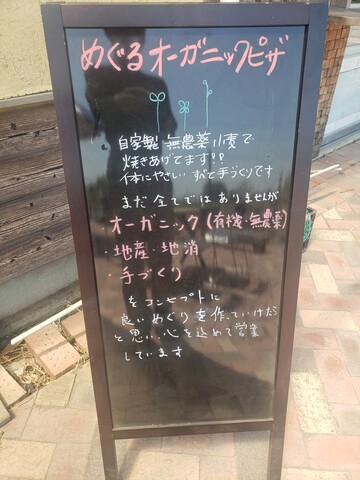 めぐるオーガニックピザ
自家製 無農薬小麦で
焼きあげてます!!
体にやさしい すべて手づくりです
まだ 全てでは ありませんが
・オーガニック (有機・無農薬)
・地産・地消
・手づくり
をコンセプトに
良いめぐりを作っていけたら
と思い、心を込めて営業
しています